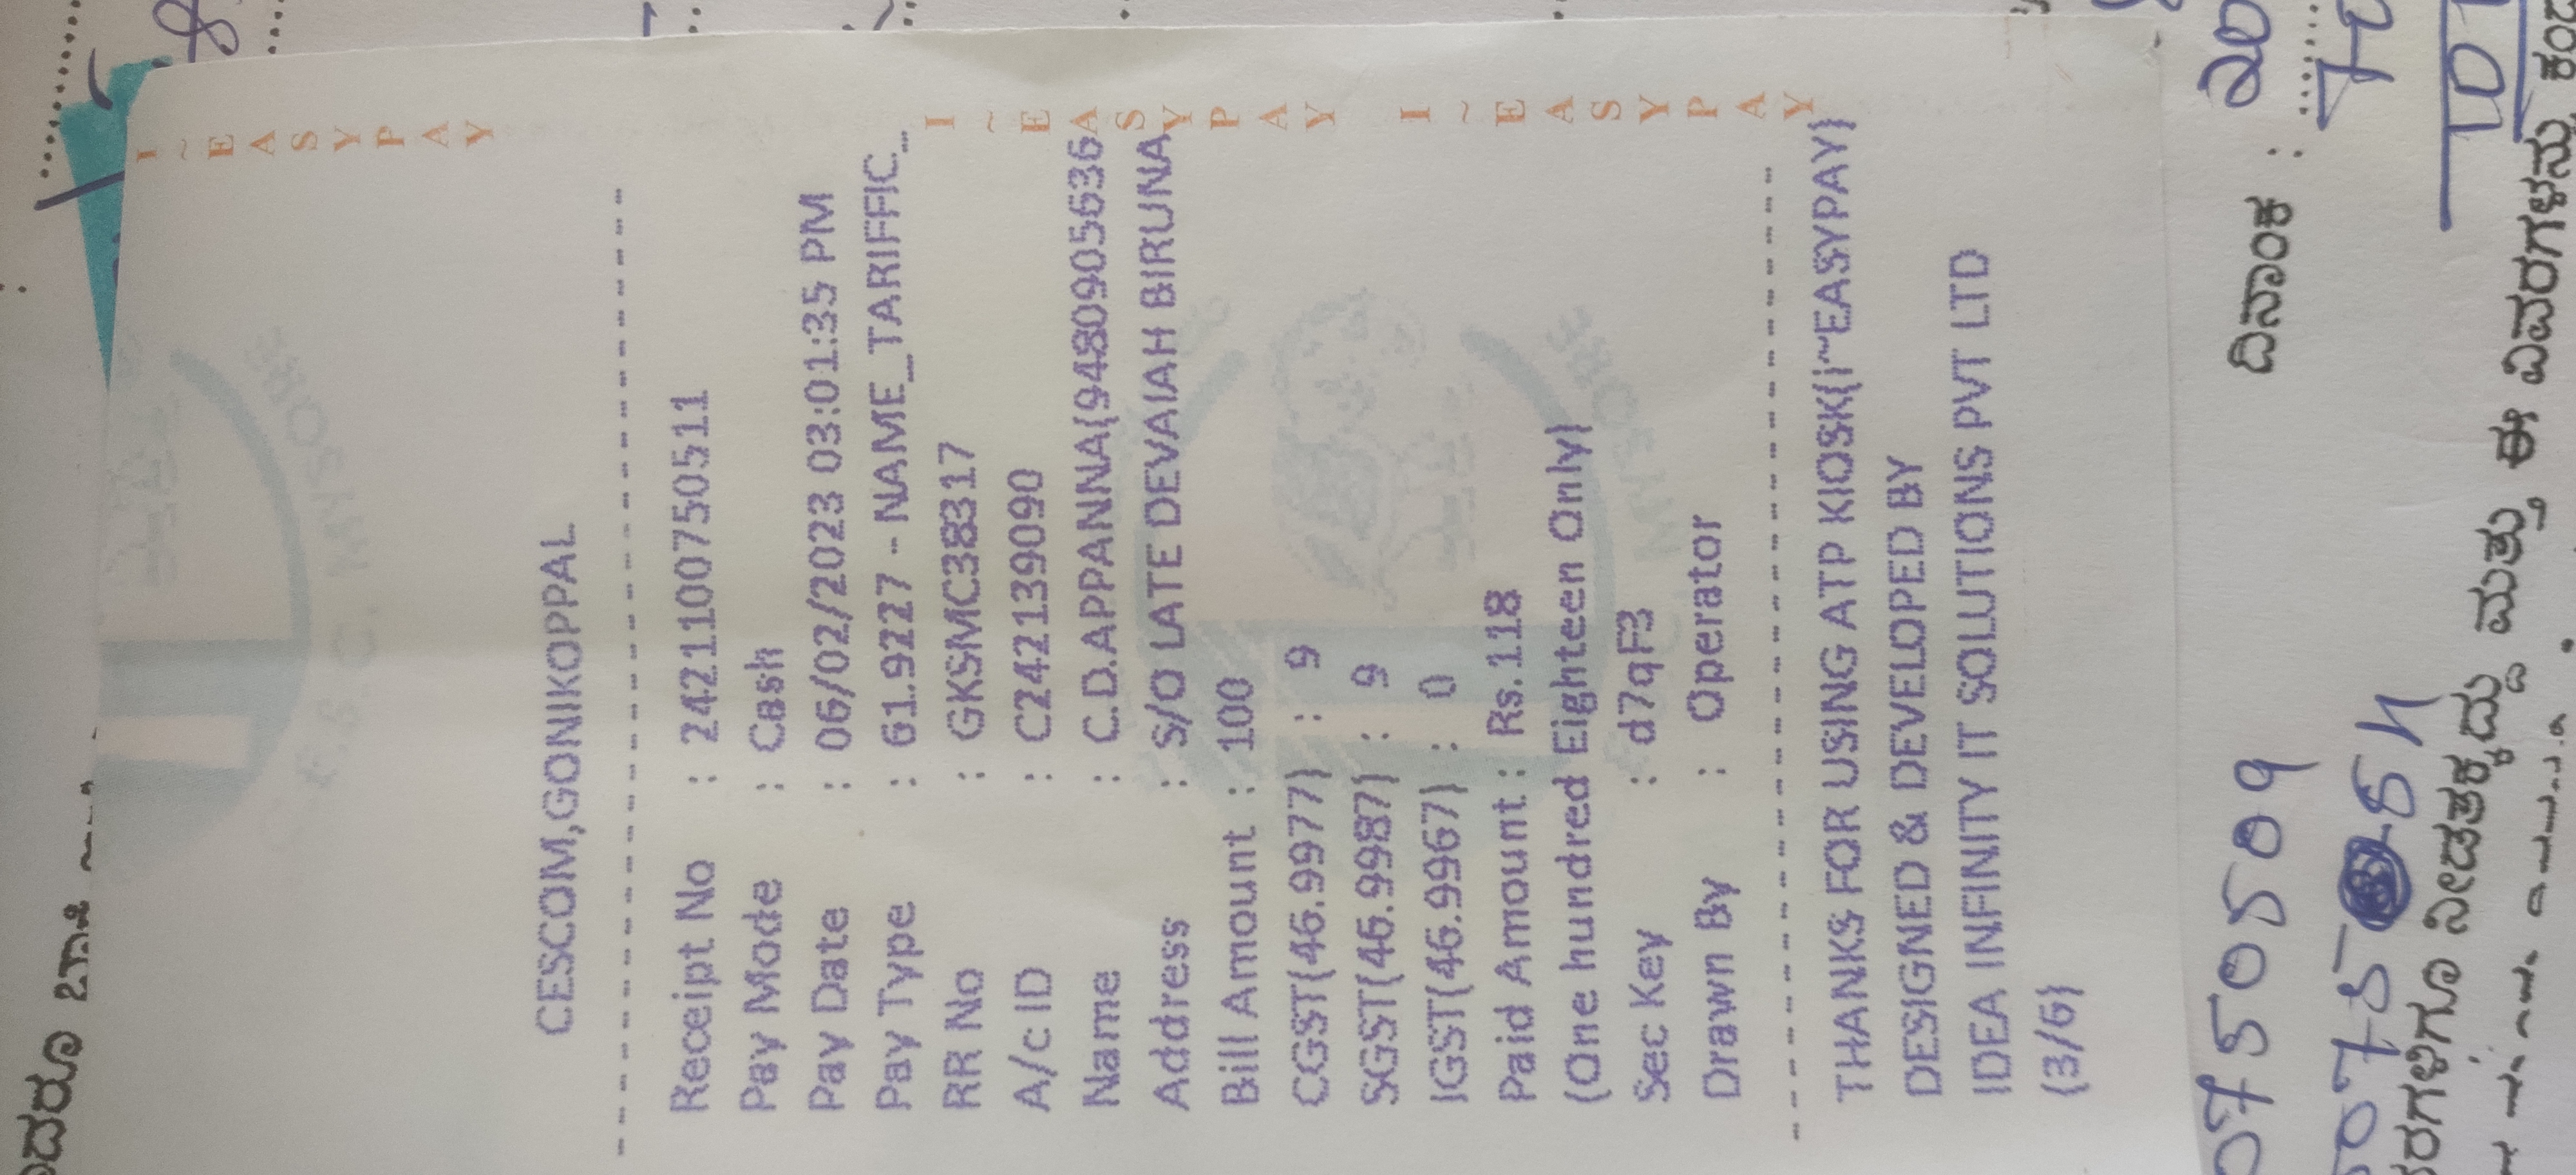 I~EASYPAY I~EASYPAY I~EASYPAY
CESCOM,GONIKOPPAL
Receipt No : 2421100750511
Pay Mode : Cash
Pay Date : 06/02/2023 03:01:35 PM
Pay Type : 61.9227 - NAME_TARIFFIC_
RR No : GKSMC38317
A/c ID : C242139090
Name : C.D.APPANNA(9480905636
Address : S/O LATE DEVAIAH BIRUNA
Bill Amount : 100
CGST(46.9977) : 9
SGST(46.9987) : 9
IGST(46.9967) : 0
Paid Amount : Rs.118
(One hundred Eighteen Only)
Sec Key : d7qF3
Drawn By : Operator
THANKS FOR USING ATP KIOSK(i~EASYPAY)
DESIGNED & DEVELOPED BY
IDEA INFINITY IT SOLUTIONS PVT LTD
(3/6)
0750509 ದಿನಾಂಕ :
ನೀಡತಕ್ಕದ್ದು ಮತ್ತು ಈ ವಿವರಗಳನ್ನು